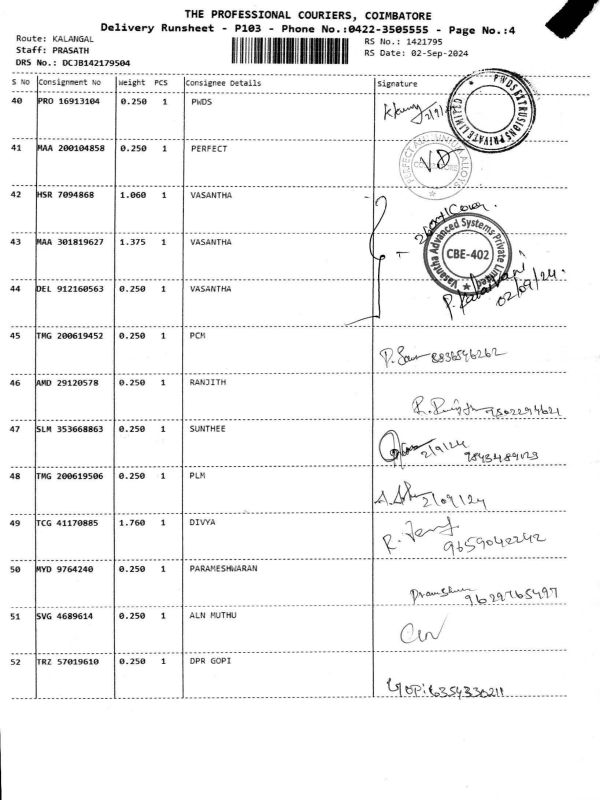 THE PROFESSIONAL COURIERS, COIMBATORE
Delivery Runsheet - P103 - Phone No.:0422-3505555 - Page No.:4
Route: KALANGAL
RS No.: 1421795
Staff: PRASATH
RS Date: 02-Sep-2024
DRS No.: DCJB142179504
S No Consignment No Weight PCS Consignee Details Signature
40 PRO 16913104 0.250 1 PWDS
2/9/
PWDS EXTRUSIONS PRIVATE LIMITED
41 MAA 200104858 0.250 1 PERFECT
42 HSR 7094868 1.060 1 VASANTHA
43 MAA 301819627 1.375 1 VASANTHA
Vasantha Advanced Systems Private Limited
CBE-402
44 DEL 912160563 0.250 1 VASANTHA
02/09/24.
45 TMG 200619452 0.250 1 PCM
8836596262
46 AMD 29120578 0.250 1 RANJITH
9502294621
47 SLM 353668863 0.250 1 SUNTHEE
2/9/24
9843489123
48 TMG 200619506 0.250 1 PLM
2/09/24
49 TCG 41170885 1.760 1 DIVYA
9659042242
50 MYD 9764240 0.250 1 PARAMESHWARAN
9629765497
51 SVG 4689614 0.250 1 ALN MUTHU
52 TRZ 57019610 0.250 1 DPR GOPI
GOPI: 6354330211